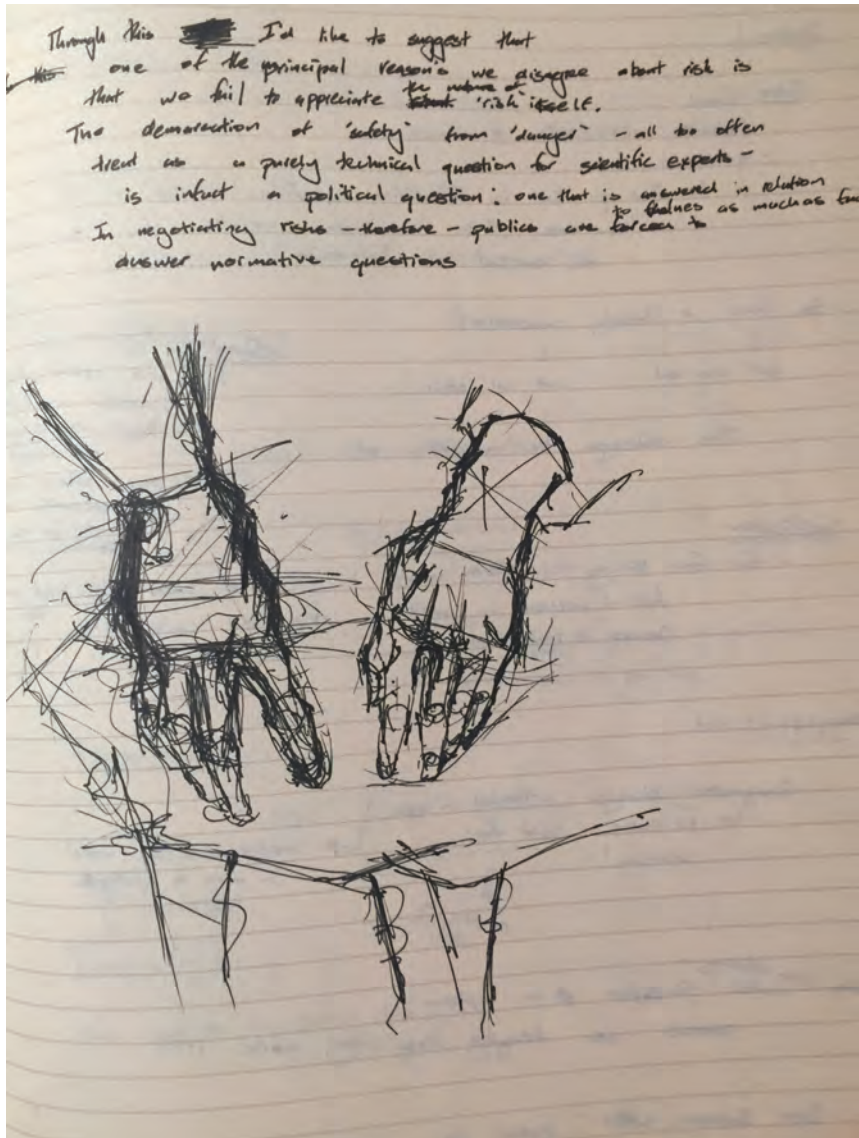 Through this I'd like to suggest that
this one of the principal reason's we disagree about risk is
that we fail to appreciate the nature of 'risk' itself.
The demarcation of 'safety' from 'danger' – all too often
treat as a purely technical question for scientific experts –
is infact a political question: one that is answered in relation
to values as much as
In negotiating risks – therefore – publics are forced to
answer normative questions